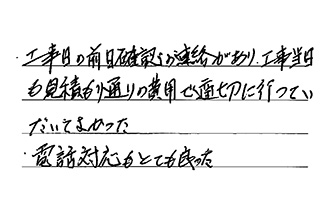 ・工事日の前日確認の連絡があり、工事当日
も見積もり通りの費用で適切に行ってい
ただいてよかった
・電話対応もとても良った